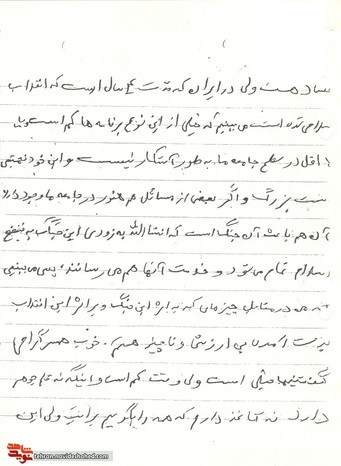 هست ولی در ایران که مدت ۴ سال است که انقلاب
اسلامی شده است می بینیم که خیلی از این نوع برنامه ها کم است و یا
اقل در سطح جامعه ما به طور آشکار نیست و این خود نعمتی
است بزرگ و اگر بعضی از مسائل هم هنوز در جامعه ما وجود دارد
آن هم باعث آن جنگ است که انشاالله به زودی این جنگ به نفع
اسلام تمام می شود و خدمت آنها هم می رسانند، پس می بینیم
که در مقابل چیزهایی که بر اثر این جنگ و بر اثر این انقلاب
بدست آمده بی ارزش و ناچیز هستم. خوب همسر گرامی
گفتنیها خیلی است ولی وقت کم است و اینکه نه قلم جوهر
دارد نه کاغذ دارم که همه را بگویم برایت ولی این
tehran.navideshahed.com